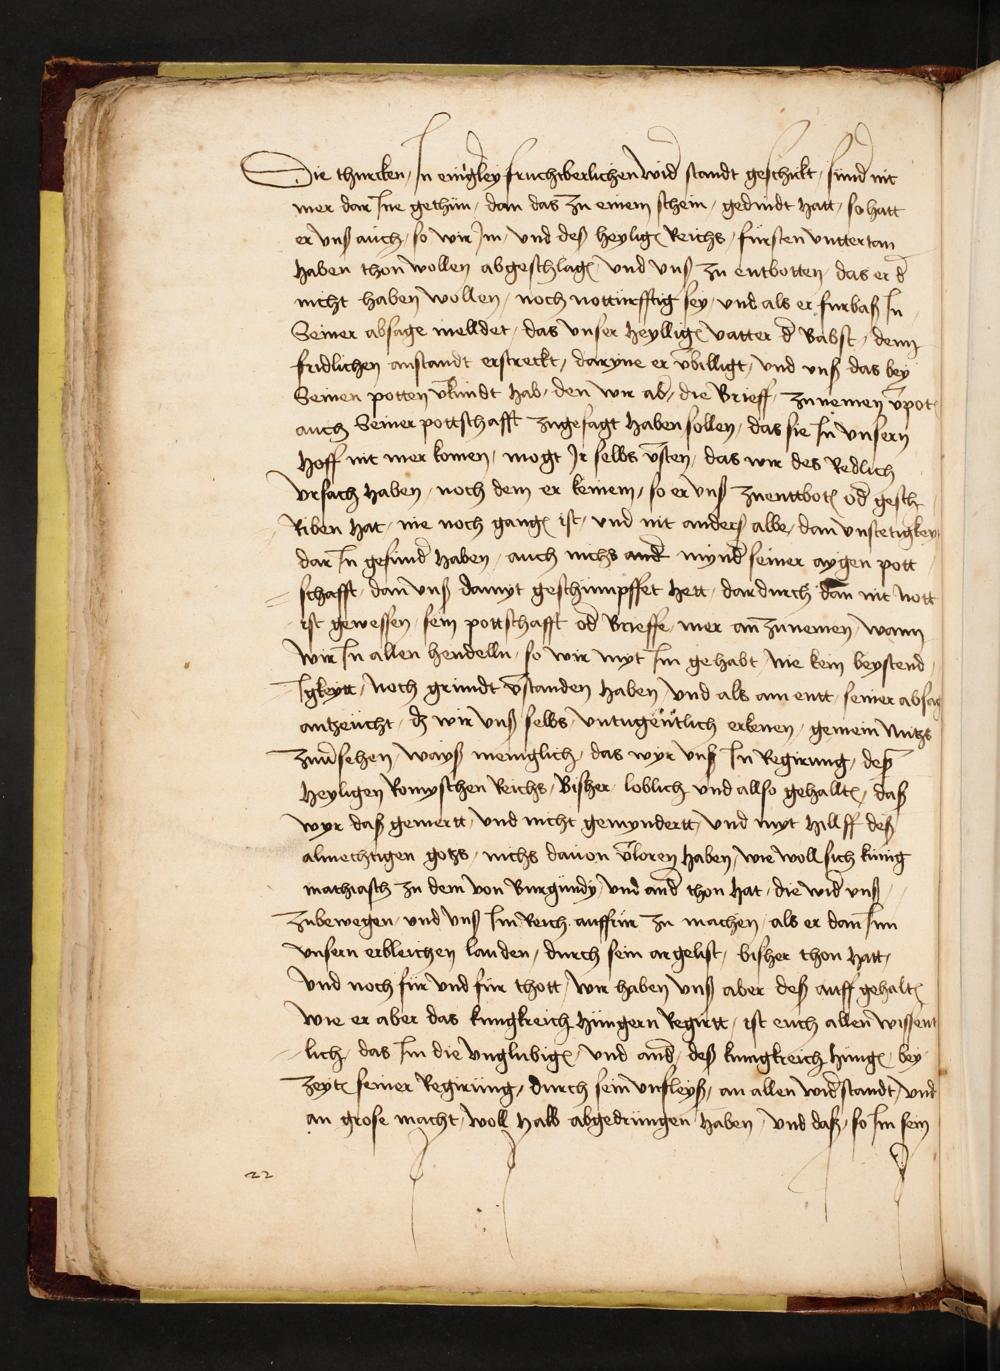 Die thurcken, In einigerley fruchtberlichen wid standt geschickt, sund nit
mer dar Ine gethün, dan das zu einem schein, gedindt hatt, so hatt
er vnß auch, so wir Jm, vnd deß heylig Reichs, fürsten vnttertan
haben thon wollen abgeschlag, vnd vnß zu entbotten, das er d
nicht haben wollen, noch nottürfftig sey, vnd als er furbaß In
Seiner absage melldet, das vnser heyllig vatter d Babst, denn
fridlichen anstandt erstreckt, daryne er v̄billigt, vnd vnß das bey
Seinen potten v̄kündt hab, den wir ab, die Brieff, zunemen v̄pot
auch Seiner pottschafft zugesagt haben sollen, das sie In vnsern
hoff nit mer komen, mogt Jr selbs v̄sten, das wir des Redlich
vrsach haben, noch dem er keinem, so er vnß zuenttbot od gesch
Riben hat, nie noch gang ist, vnd nit anders allve, dan vnstetigkey
dar In gefund haben, auch nichs and mynd seiner aygen pott
schafft, dan vnß damyt geschimpffet hett, dardurch dan nit nott
ist gewessen, sein pottschafft od Brieffe, mer an zunemen, wann
wir In allen hendelln, so wir myt Im gehabt, nie kein beystend
Igkeytt, noch grundt v̄standen haben vnd als am entt, seiner absag
antzeücht, dz wir vnß selbs, vntugentlich erkenen, gemein Nutzs
zuu̅sehen, wayß meniglich, das wyr vnß In Regirung, deß
heyligen Romyschen Reichs, Bißher, loblich vnd allso gehallt, daß
wyr daß gemertt, vnd nicht gemyndertt, vnd myt hillff deß
almechtigen gotzs, nichs dauon v̄loren haben, wie woll sich künig
mathiasch zu dem von Burgundy, vnd and thon hat, die wid vnß,
zubewegen, vnd vnß Im Reich auffrür zu machen, als er dan Inn
vnsern erblichen landen, durch sein argelist, bisher thon hatt,
vnd noch für vnd für thott, wir haben vnß aber deß auff gehalt
wie er aber das kungkreich Hüngern Regirtt, ist euch allen wissent
lich, das Im die vnglubig, vnd and, deß kungkreich hung, bey
zeyt seiner Regirüng, durch sein vnfleyß, an allen widstandt, vnd
an grose macht, woll halb abgedrüngen haben, vnd daß, so Im sein
22